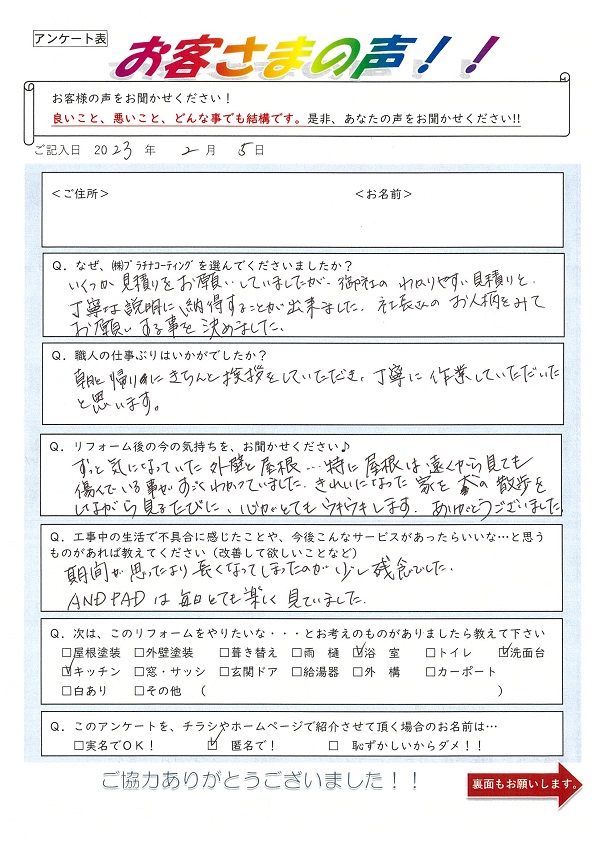 アンケート表
お客さまの声！！
お客様の声をお聞かせください！
良いこと、悪いこと、どんな事でも結構です。是非、あなたの声をお聞かせください!!
ご記入日 2023 年 2 月 5 日
＜ご住所＞ ＜お名前＞
Q．なぜ、㈱ﾌﾟﾗﾁﾅｺｰﾃｨﾝｸﾞを選んでくださいましたか？
いくつか見積りをお願いしていましたが、御社の わかりやすい見積りと、
丁寧な説明に、納得することが出来ました。社長さんの お人柄をみて
お願いする事を決めました。
Q．職人の仕事ぶりはいかがでしたか？
朝と帰りにきちんと挨拶をしていただき、丁寧に作業していただいた
と思います。
Q．リフォーム後の今の気持ちを、お聞かせください♪
ずっと気になっていた外壁と屋根…特に屋根は遠くから見ても
傷んでいる事がすごくわかっていました。きれいになった家を 犬の散歩を
しながら見るたびに、心がとてもウキウキします。ありがとうございました
Q．工事中の生活で不具合に感じたことや、今後こんなサービスがあったらいいな…と思う
ものがあれば教えてください（改善して欲しいことなど）
期間が思ったより長くなってしまったのが少し残念でした。
ANDPADは毎日とても楽しく見ていました。
Q．次は、このリフォームをやりたいな・・・とお考えのものがありましたら教えて下さい
□屋根塗装 □外壁塗装 □葺き替え □雨 樋 ☑浴 室 □トイレ ☑洗面台
☑キッチン □窓・サッシ □玄関ドア □給湯器 □外 構 □カーポート
□白あり □その他 （ ）
Q．このアンケートを、チラシやホームページで紹介させて頂く場合のお名前は…
□実名でOK！ ☑ 匿名で！ □ 恥ずかしいからダメ！！
ご協力ありがとうございました！！
裏面もお願いします。